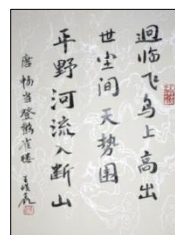 迥临飞鸟上高出
世尘间天势围
平野河流入断山
唐畅当登鹳雀楼